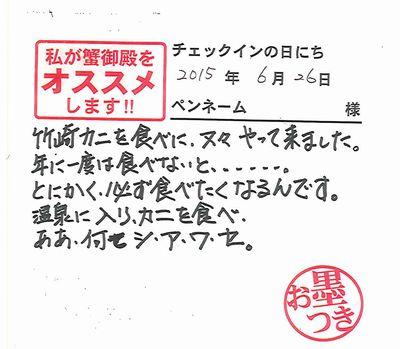 私が蟹御殿を
オススメ
します!!
チェックインの日にち
2015 年 6 月 26 日
ペンネーム 様
竹崎カニを食べに、又々やって来ました。
年に一度は食べないと、......。
とにかく、必ず食べたくなるんです。
温泉に入り、カニを食べ、
ああ、何てシ・ア・ワ・セ。
お墨つき